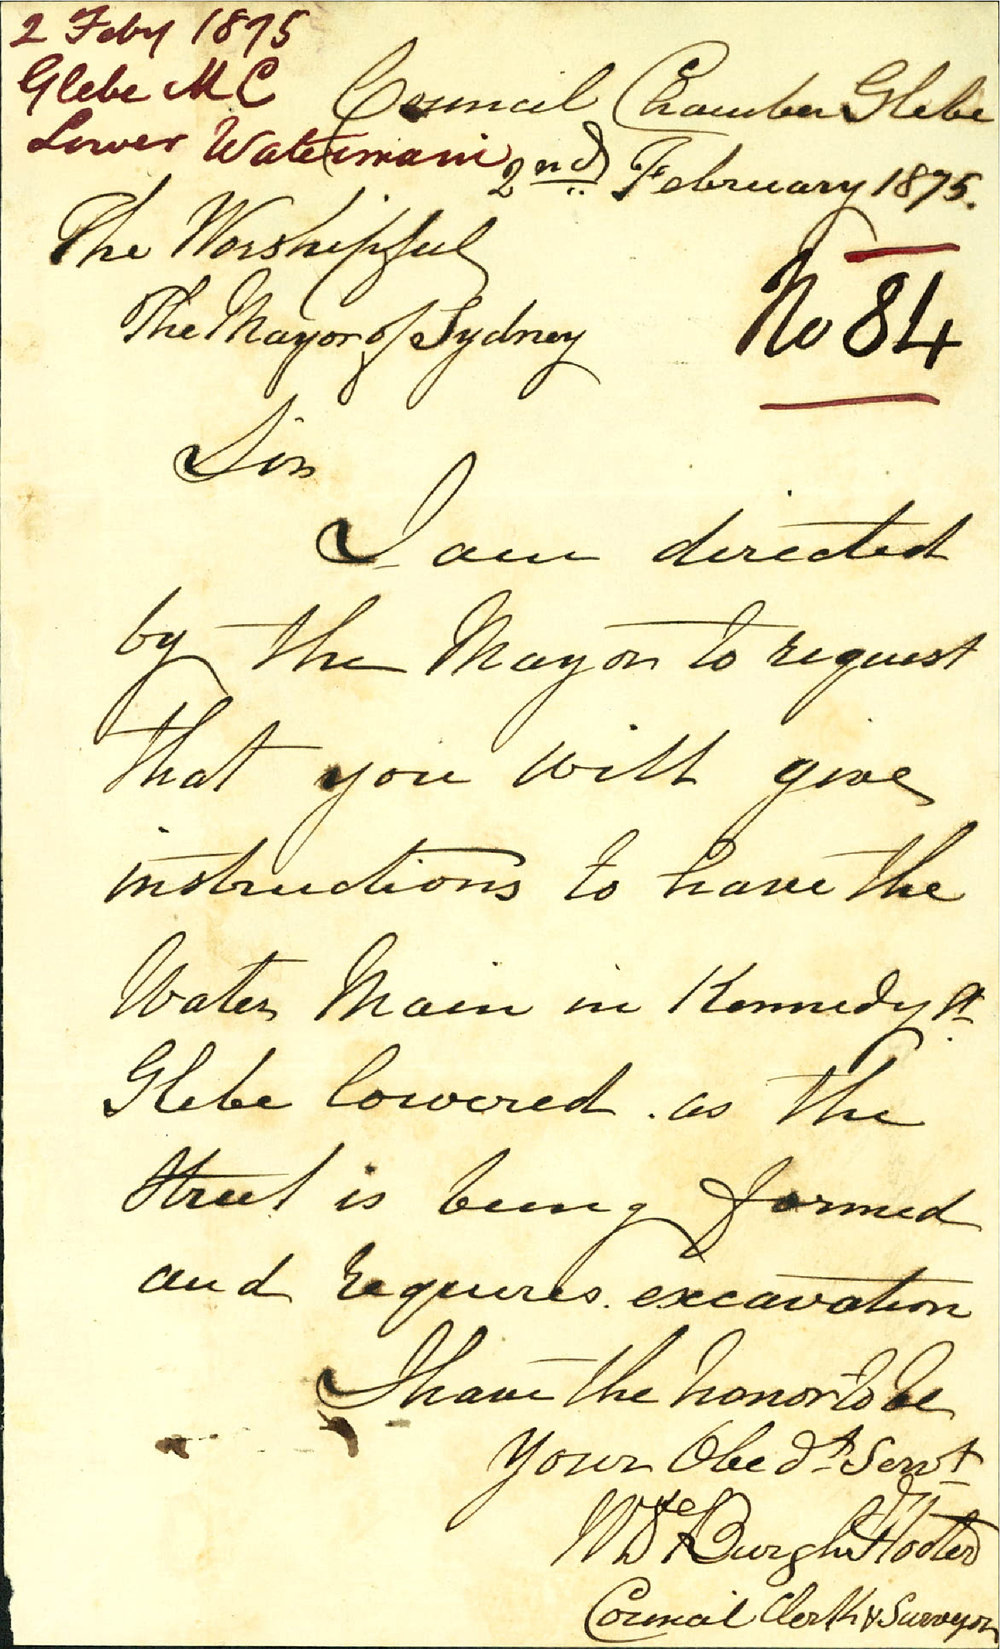 2 Feby 1875
Glebe M C
Lower Watermain
Council Chamber Glebe
2nd February 1875.
The Worshipful
The Mayor of Sydney
No 84
Sir
I am directed
by the Mayor to request
that you will give
instructions to have the
Water Main in Kennedy St
Glebe lowered. as the
Street is being formed
and requires. excavation
I have the honor to be
Your Obedt Servt
W De Burgh Hocter
Council Clerk & Surveyor